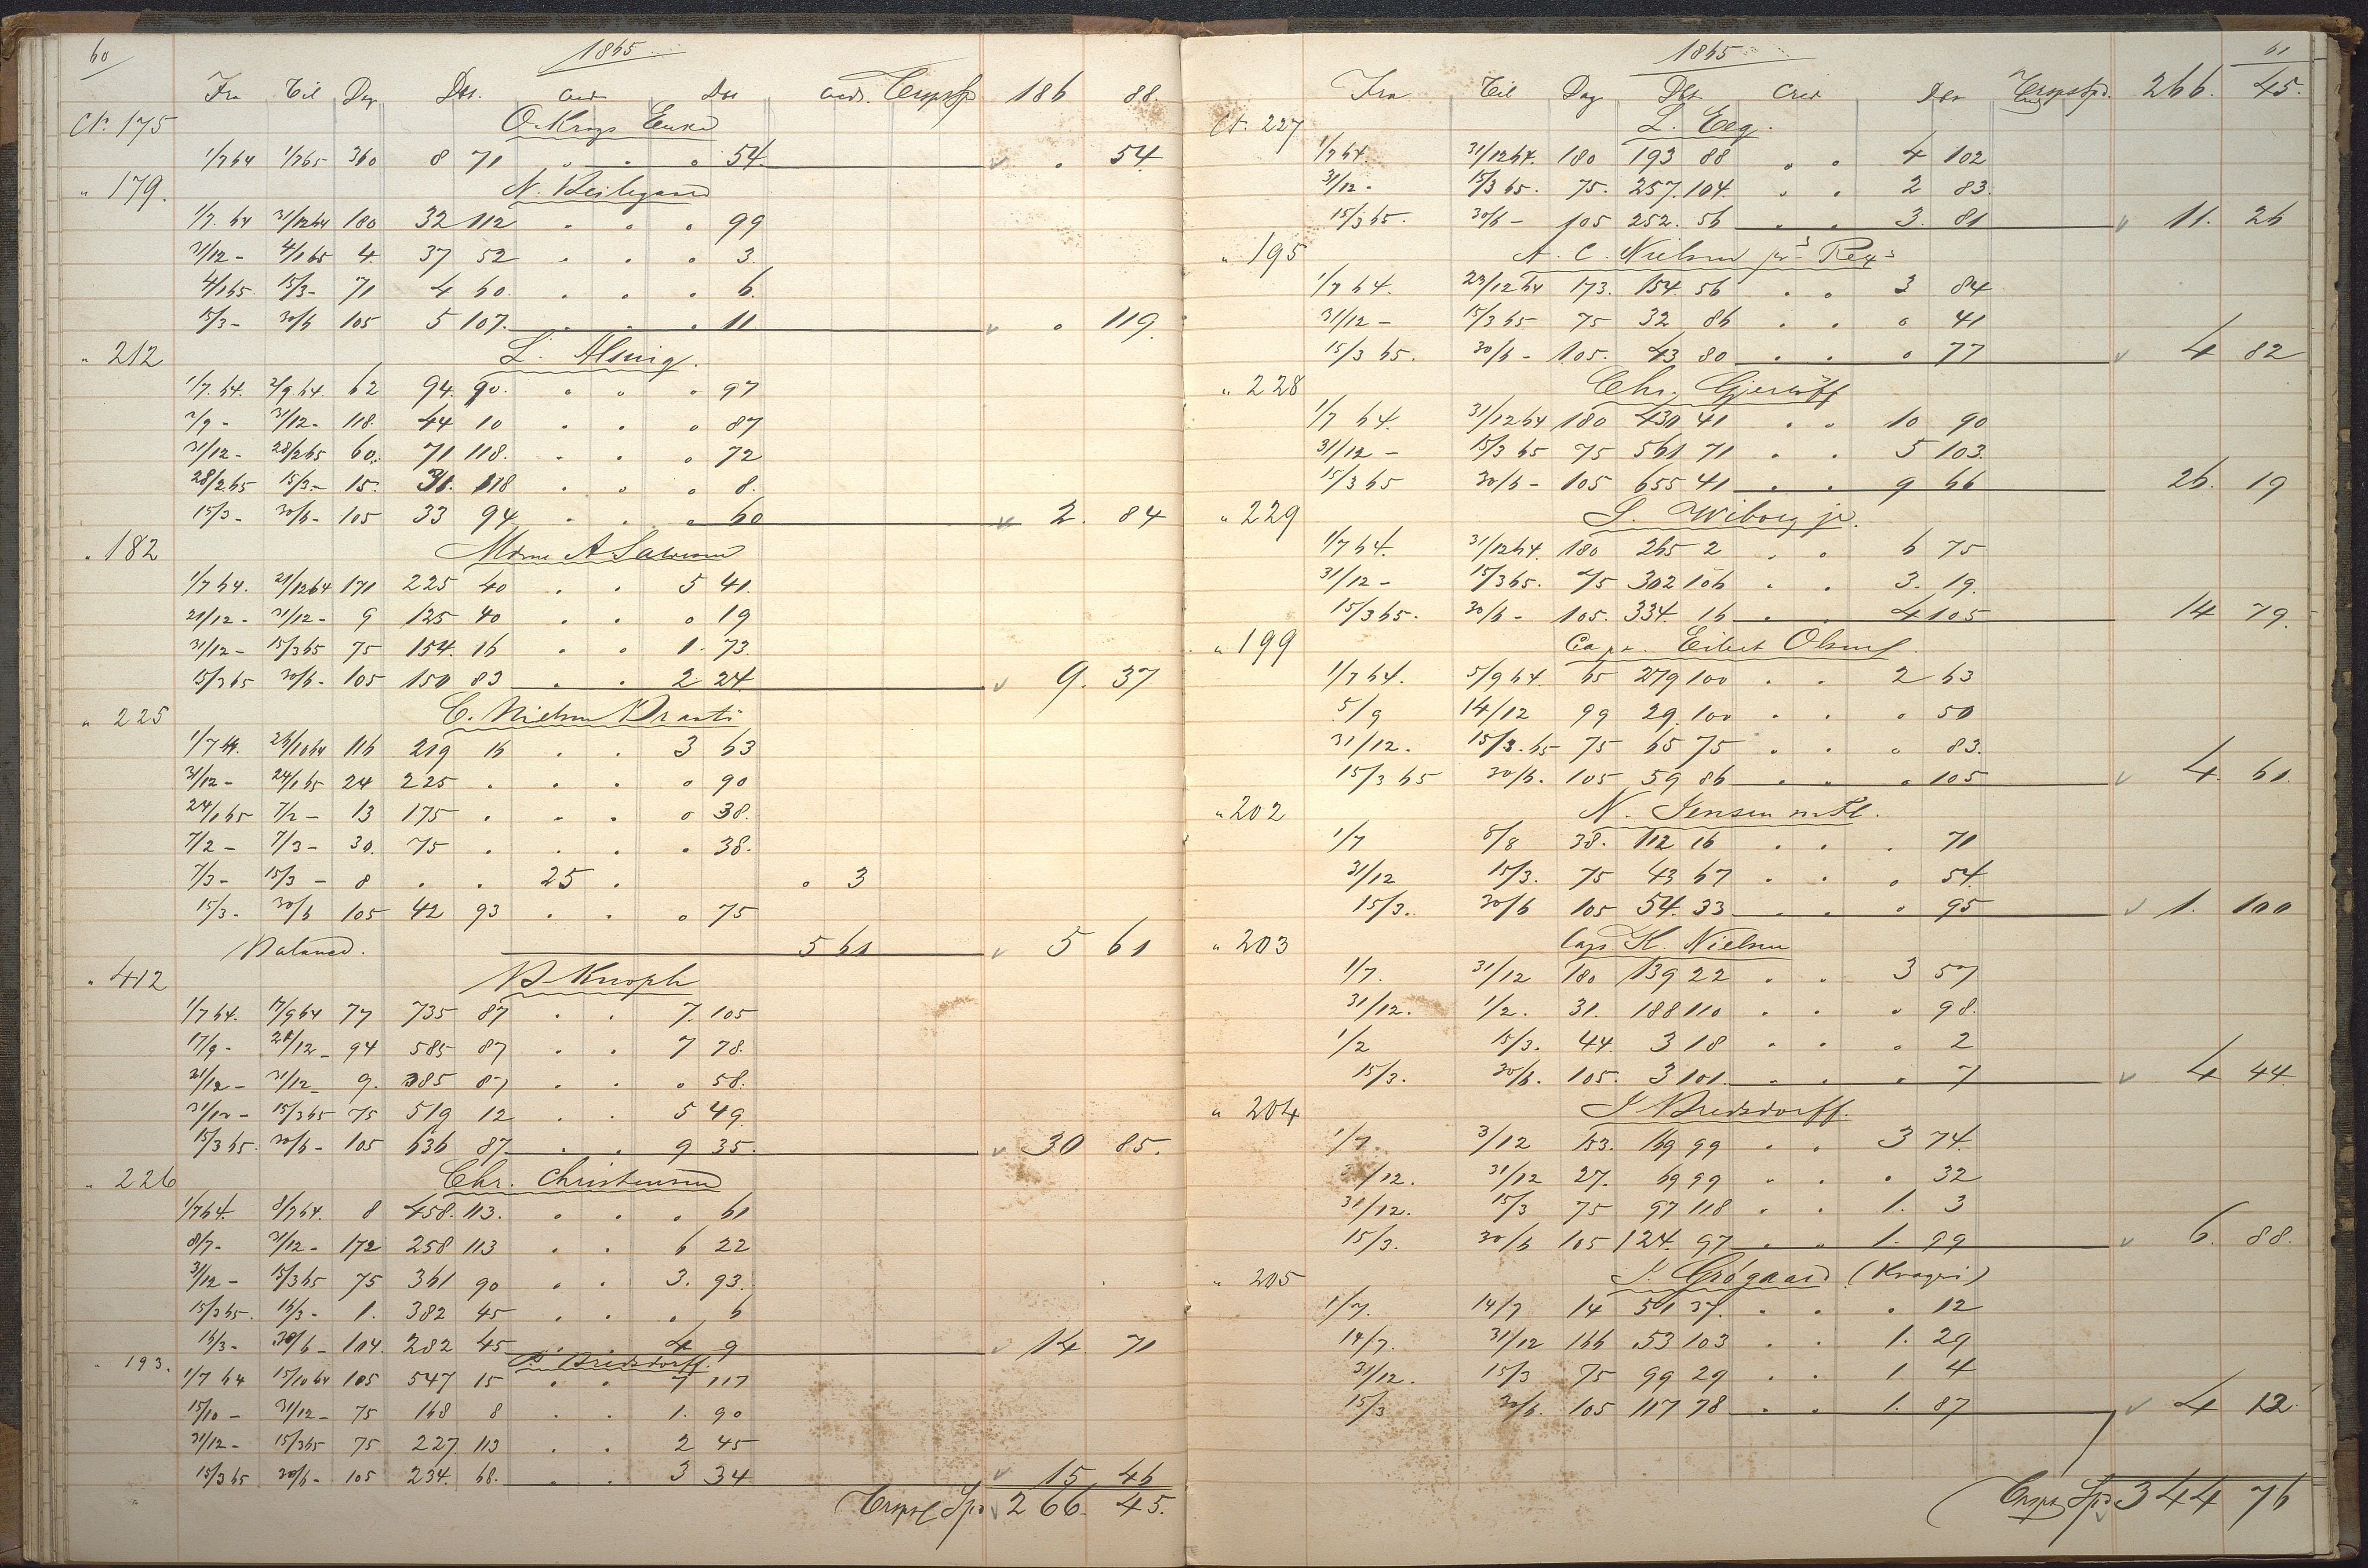 60
1865
Fra Til Dag Dbt. Cred Dbt Cred. Transpt Spd 186 88.
Ct. 175 O. Krogs Enke
1/7 64 1/7 65 360 8 71 " " " 54. " 54.
" 179. N.
1/7. 64 31/12 64 180 32 112 " " " 99
31/12 - 4/1 65 4. 37 52 " " " 3.
4/1 65. 15/3 - 71 4 60. " " " 6.
15/3 - 30/6 105 5 107. " " " 11 " 119.
" 212 L. Alsing.
1/7. 64. 2/9 64. 62 94. 90. " " " 97
2/9 - 31/12 - 118. 44 10 " " " 87
31/12 - 28/2 65 60. 71 118. " " " 72
28/2 65 15/3 - 15. 31. 118 " " " 8.
15/3 - 30/6 - 105 33 94 " " " 60 2. 84
" 182 Mdme A
1/7 64. 21/12 64 171 225 40 " " 5 41.
21/12 - 31/12 - 9 125 40 " " " 19
31/12 - 15/3 65 75 154. 16 " " 1. 73.
15/3 65 30/6 - 105 150 83 " " 2 24. 9. 37
" 225 C. Nielsen
1/7 64. 26/10 64 116 219 16 " " 3 63
31/12 - 24/1 65 24 225 " " " " 90
24/1 65 7/2 - 13 175 " " " " 38.
7/2 - 7/3 - 30. 75 " " " " 38.
7/3 - 15/3 - 8 " " 25 " " 3
15/3 - 30/6 105 42 93 " " " 75
Balance. 5 61 5 61
" 412 B Knoph
1/7 64. 17/9 64 77 735 87 " " 7. 105
17/9 - 21/12 - 94 585 87 " " 7 78.
21/12 - 31/12 - 9. 385 87 " " " 58.
31/12 - 15/3 65 75 519 12 " " 5 49.
15/3 65. 30/6 - 105 636 87 " " 9 35. 30 85.
" 226 Chr. Christensen
1/7 64. 8/7 64. 8 458. 113. " " " 61
8/7 - 31/12 - 172 258 113 " " 6 22
31/12 - 15/3 65 75 361 90 " " 3. 93.
15/3 65. 16/3 - 1. 382 45 " " " 6
16/3 - 30/6 - 104. 282 45 " " 4 9 14 71
" 193. P. Bredsdorff.
1/7 64 15/10 64 105 547 15 " " 7 117
15/10 - 31/12 - 75 168 8 " " 1. 90
31/12 - 15/3 65 75 227 113 " " 2 45
15/3 65 30/6 - 105 234. 68. " " 3 34 15 46
Transpt Spd 266. 45.
61
1865
Fra Til Dag Dbt Cred Dbt Cred Transpt Spd. 266. 45.
Ct. 227 L. Eeg.
1/7 64. 31/12 64. 180 193 88 " " 4 102
31/12 - 15/3 65. 75. 257. 104. " " 2 83.
15/3 65. 30/6 - 105 252. 56 " " 3. 81 11. 26
" 195 A. C. Nielsen
1/7 64. 23/12 64 173. 154. 56 " " 3 84
31/12 - 15/3 65 75 32 86 " " " 41
15/3 65. 30/6 - 105. 43 80 " " " 77 4 82
" 228 Chr. Gjerløff
1/7 64. 31/12 64 180 430 41 " " 10 90
31/12 - 15/3 65 75 561 71 " " 5 103.
15/3 65 30/6 - 105 655 41 " " 9 66 26. 19
" 229 S. Wiborg jr.
1/7 64. 31/12 64. 180 265 2 " " 6 75
31/12 - 15/3 65. 75 302 106 " " 3. 19.
15/3 65. 30/6 - 105. 334. 16 " " 4 105 14 79.
" 199 Capt. Eilert Olsen
1/7 64. 5/9 64. 65 279 100 " " 2 63
5/9 14/12 99 29. 100 " " " 50
31/12. 15/3. 65 75 65 75 " " " 83.
15/3 65 30/6. 105 59 86 " " " 105 4. 61.
" 202 N. Jensen
1/7 8/8 38. 112 16 " " " 71
31/12 15/3. 75 43 67 " " " 54.
15/3. 30/6 105 54. 33 " " " 95 1. 100
" 203 Capt K. Nielsen
1/7. 31/12 180 139 22 " " 3 57
31/12. 1/2. 31. 188 110 " " " 98.
1/2 15/3. 44. 3 18 " " " 2
15/3. 30/6. 105. 3 101. " " " 7 4 44.
" 204 J Bredsdorff.
1/7. 3/12 153. 169 99 " " 3 74.
3/12. 31/12 27. 69 99 " " " 32
31/12. 15/3 75 97 118 " " 1. 3
15/3. 30/6 105 124. 97 " " 1. 99 6. 88.
" 205 J. Grøgaard (Kragerø)
1/7. 14/7 14 51 37. " " " 12
14/7. 31/12 166 53 103 " " 1. 29
31/12. 15/3 75 99 29 " " 1 4
15/3 30/6. 105 117 78 " " 1. 87 4 12.
Transpt Spd 344 76